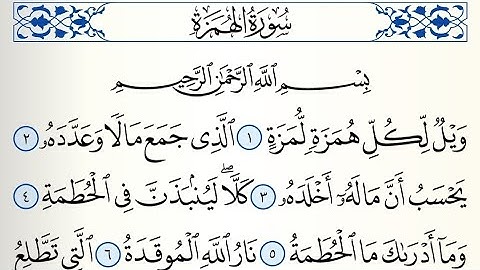 سُورَةُ الْهُمَزَةِ
بِسْمِ ٱللَّهِ ٱلرَّحْمَٰنِ ٱلرَّحِيمِ
وَيْلٌ لِّكُلِّ هُمَزَةٍ لُّمَزَةٍ ١ ٱلَّذِى جَمَعَ مَالًا وَعَدَّدَهُۥ ٢
يَحْسَبُ أَنَّ مَالَهُۥٓ أَخْلَدَهُۥ ٣ كَلَّا ۖ لَيُنۢبَذَنَّ فِى ٱلْحُطَمَةِ ٤
وَمَآ أَدْرَىٰكَ مَا ٱلْحُطَمَةُ ٥ نَارُ ٱللَّهِ ٱلْمُوقَدَةُ ٦ ٱلَّتِى تَطَّلِعُ